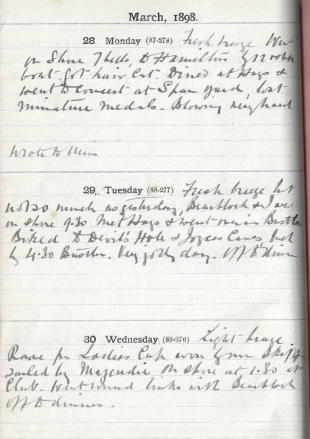 March, 1898.
28 Monday (87-278) Fresh breeze Went
on Shore to Hamilton by 12 o'clk
boat got hair Cut. Dined at Hogs &
went to Concert at Spar yard, lost
miniature medals. Blowing very hard
Wrote to
29, Tuesday (88-277) Fresh breeze but
not so much as yesterday, & I went
on shore 9.30 Met Hogs & went over in
Biked to Devil's Hole & Joyces Caves, back
by 4.30 Very jolly day. Off to dinner
30 Wednesday (89-276) Light breeze.
Race for Ladies Cup won by our Skiff
sailed by Magendie on shore at 1.30 at
Club. Went round links with
off to dinner.